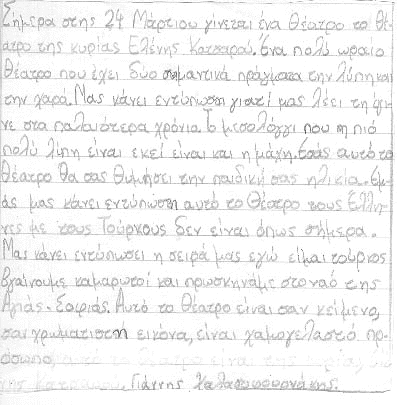 Σήμερα στης 24 Μάρτιου γίνεται ένα Θέατρο το θέ-
ατρο της κυρίας Ελένης Κατσαρού. Ένα πολύ ωραίο
θέατρο που έχει δύο σημαντικά πράγματα την λύπη και
την χαρά. Μας κάνει εντύπωση γιατί μας λέει τη έγι-
νε στα παλαιότερα χρόνια. Το μεσολόγγι που η πιό
πολύ λύπη είναι εκεί είναι και η μάχη. Εσάς αυτό το
θέατρο θα σας θυμήσει την παιδική σας ηλικία. Εμ-
άς μας κάνει εντύπωση αυτό το θέατρο τους Έλλη-
νες με τους Τούρκους δεν είναι όπως σήμερα.
Μας κάνει εντύπωσει η σειρά μας εγώ είμαι τούρκος
βγαίνουμε καμαρωτοί και προσκηνάμε στο ναό της
Αγιάς-Σοφιάς. Αυτό το θέατρο είναι σαν κείμενο,
σαν χρωματιστη εικόνα, είναι χαμογελαστό πρ-
όσωπο, αυτό το θέατρο είναι της κυρίας
της Κατσαρού. Γιάννης